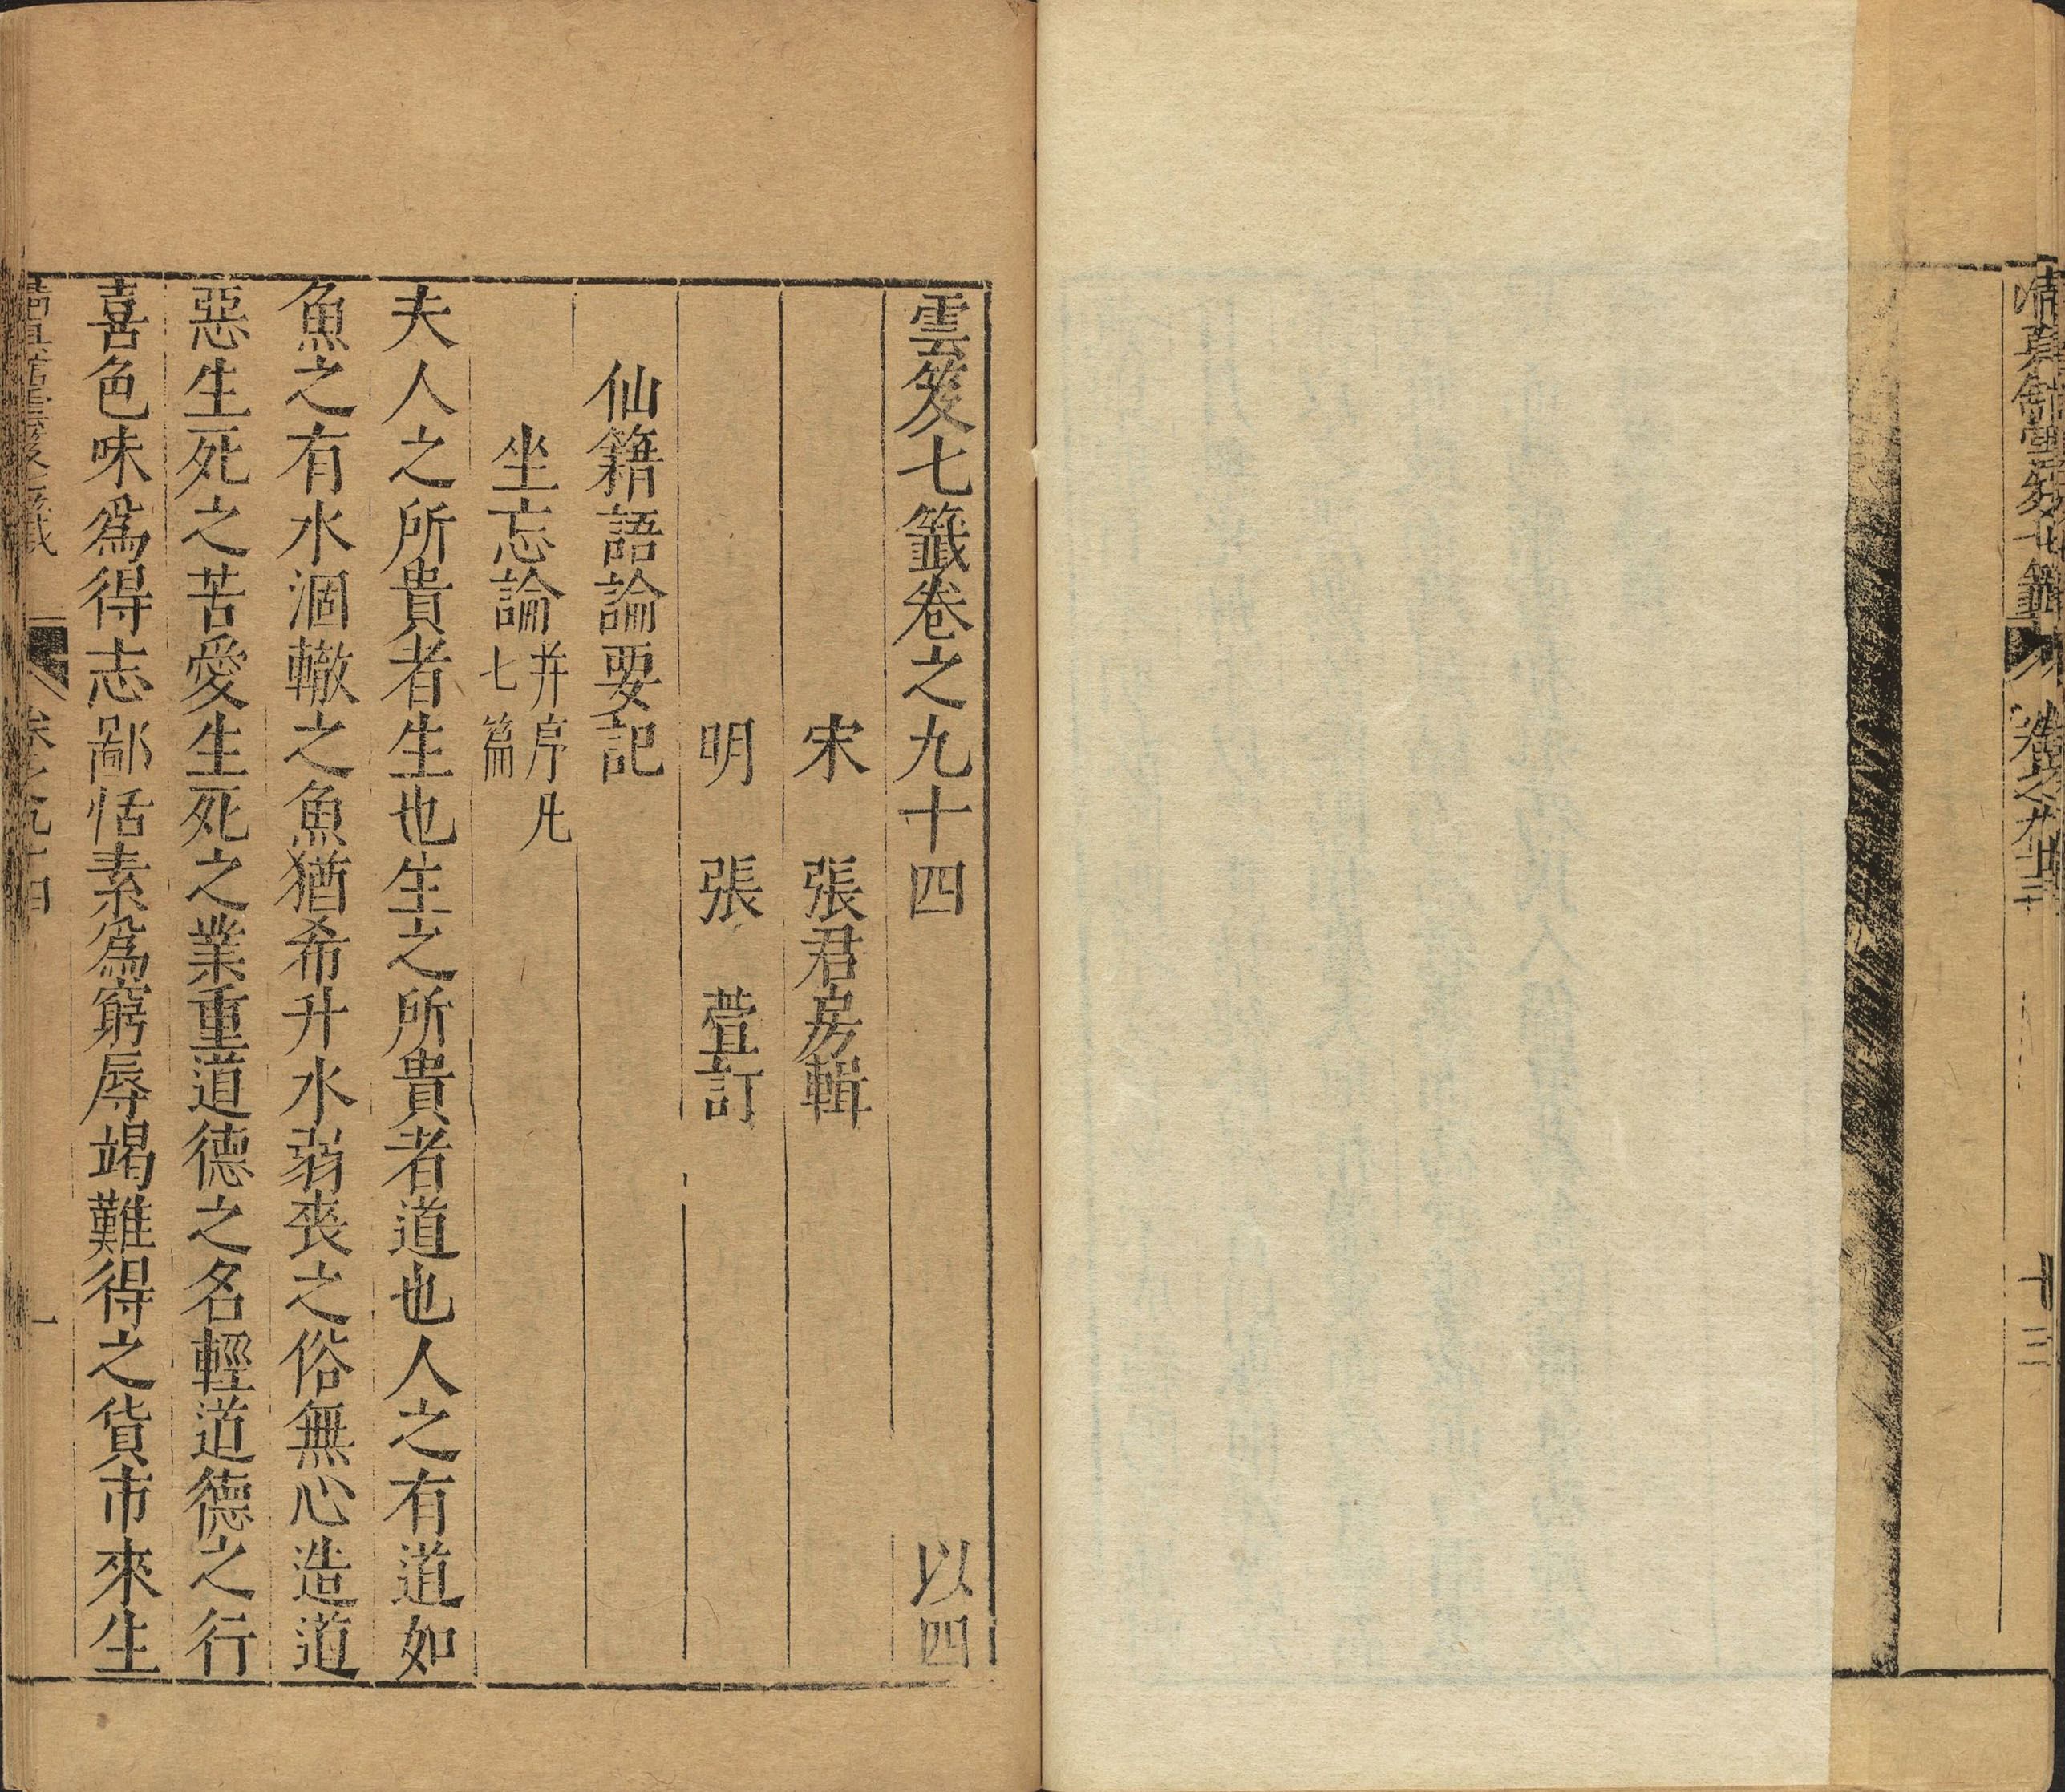 清真館雲笈七籤 卷之九十三 十三
雲笈七籤卷之九十四 以四
宋 張君房輯
明 張 萱訂
仙籍語論要記
坐忘論 并序凡七篇
夫人之所貴者生也生之所貴者道也人之有道如
魚之有水涸轍之魚猶希升水弱喪之俗無心造道
惡生死之苦愛生死之業重道德之名輕道德之行
喜色味為得志鄙恬素為窮辱竭難得之貨市來生
清真館雲笈七籤 卷之九十四 一